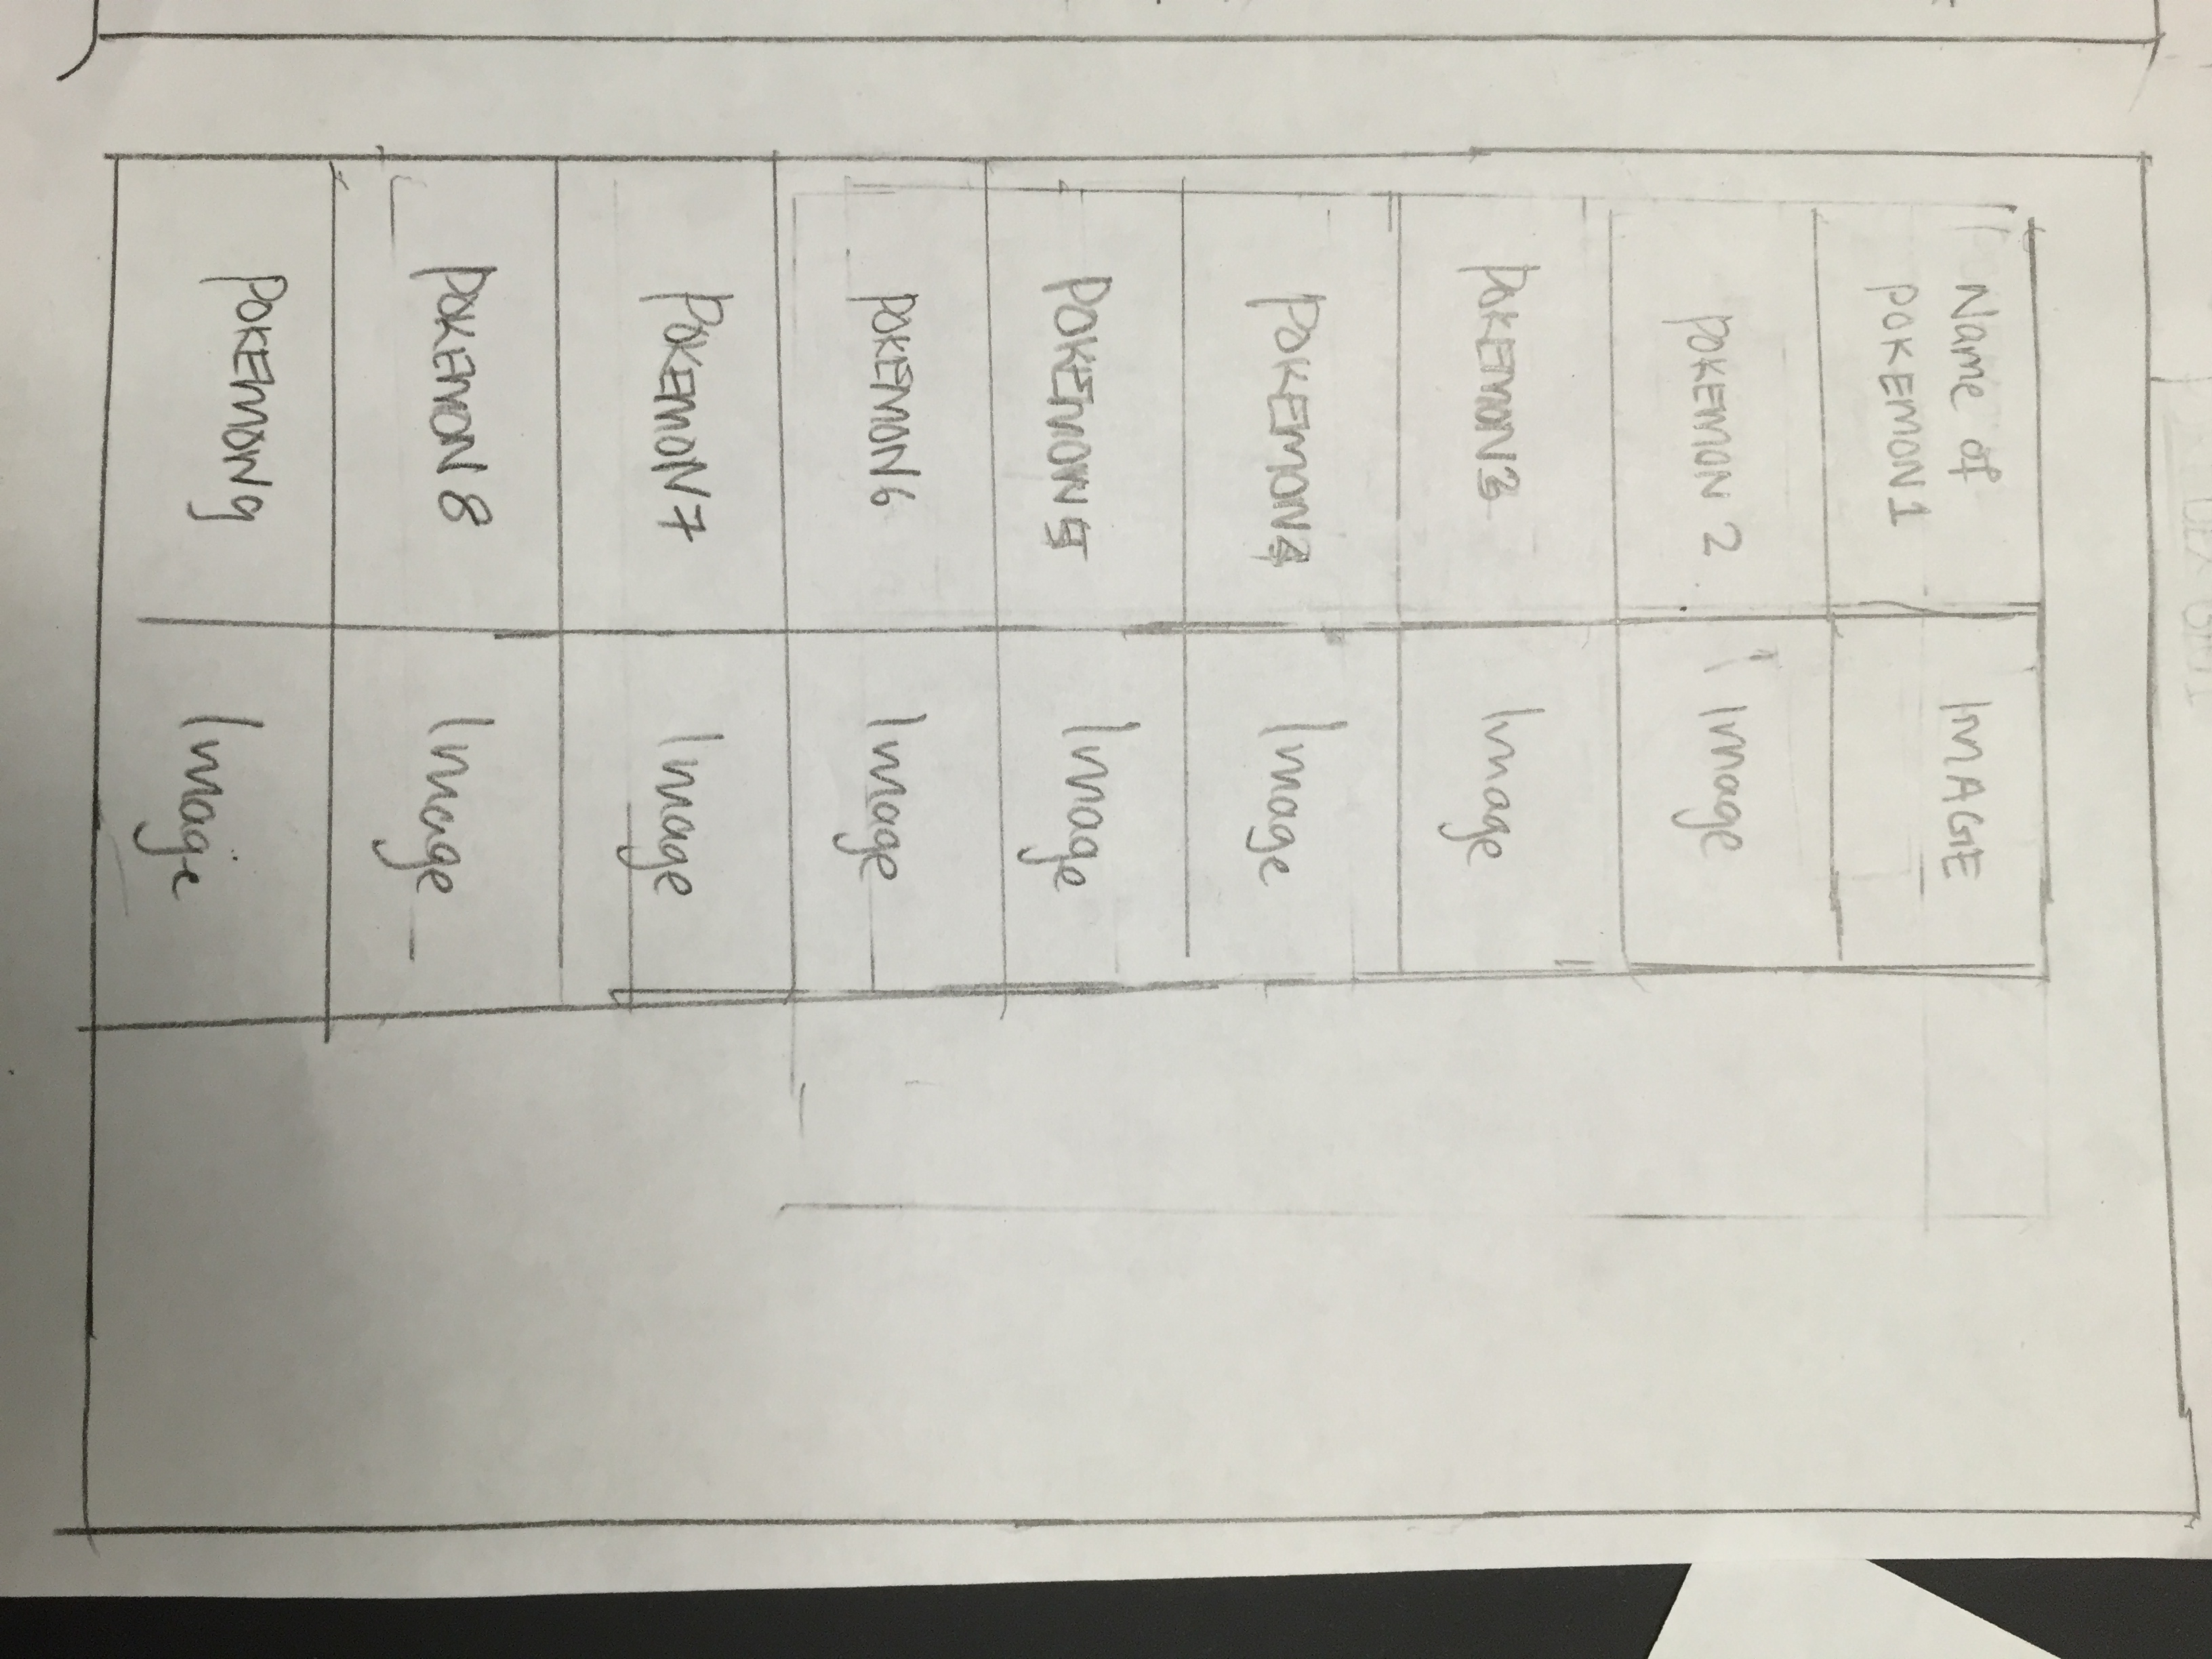 Name of
POKEMON 1
IMAGE
POKEMON 2
Image
POKEMON 3
Image
POKEMON 4
Image
POKEMON 5
Image
POKEMON 6
Image
POKEMON 7
Image
POKEMON 8
Image
POKEMON 9
Image